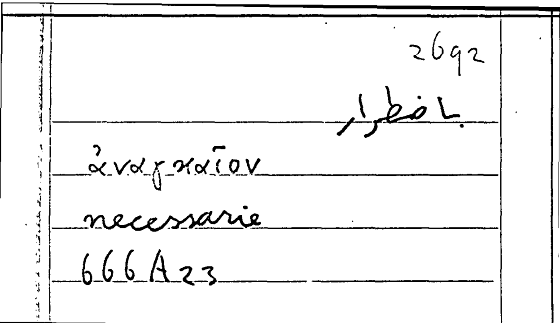 2692
باضطرار
ἀναγκαῖον
necessarie
666A23